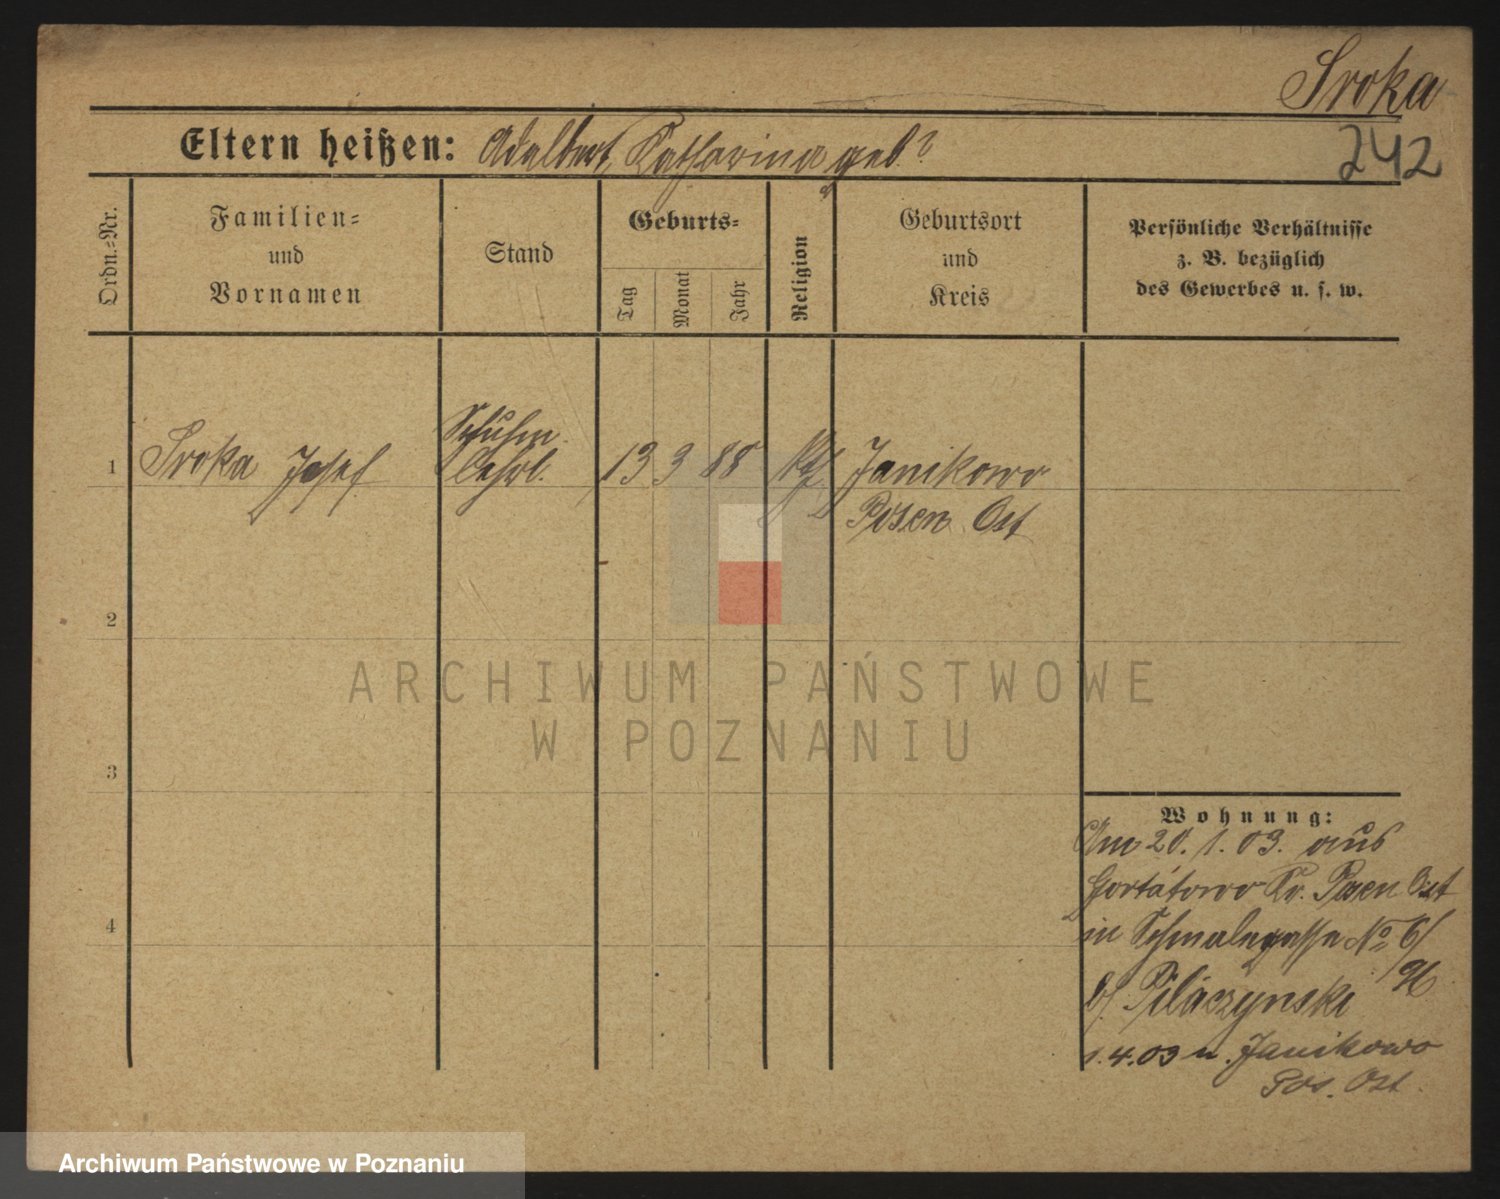 Sroka
242
Eltern heißen: Adalbert, Katharina geb.?
Ordn.-Nr.
Familien-
und
Vornamen
Stand
Geburts-
Tag
Monat
Jahr
Religion
Geburtsort
und
Kreis
Persönliche Verhältnisse
z. B. bezüglich
des Gewerbes u. s. w.
Schuhm.
1 Sroka Josef Lehrl. 13 3 88 kth Janikowo
Posen Ost
2
3
4
Wohnung:
Am 20. 1. 03. aus
Gortatowo Kr. Posen Ost
in Schmalegasse No 6/
b/ Pilaczynski
1.4.03 n. Janikowo
Pos. Ost.
ARCHIWUM PAŃSTWOWE
W POZNANIU
Archiwum Państwowe w Poznaniu